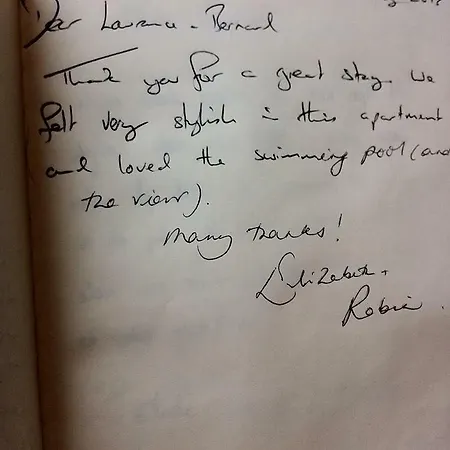 Dear Laurence + Bernard
Thank you for a great stay. We
felt very stylish in this apartment
and loved the swimming pool (and
the view).
Many thanks!
Elizabeth +
Robin.